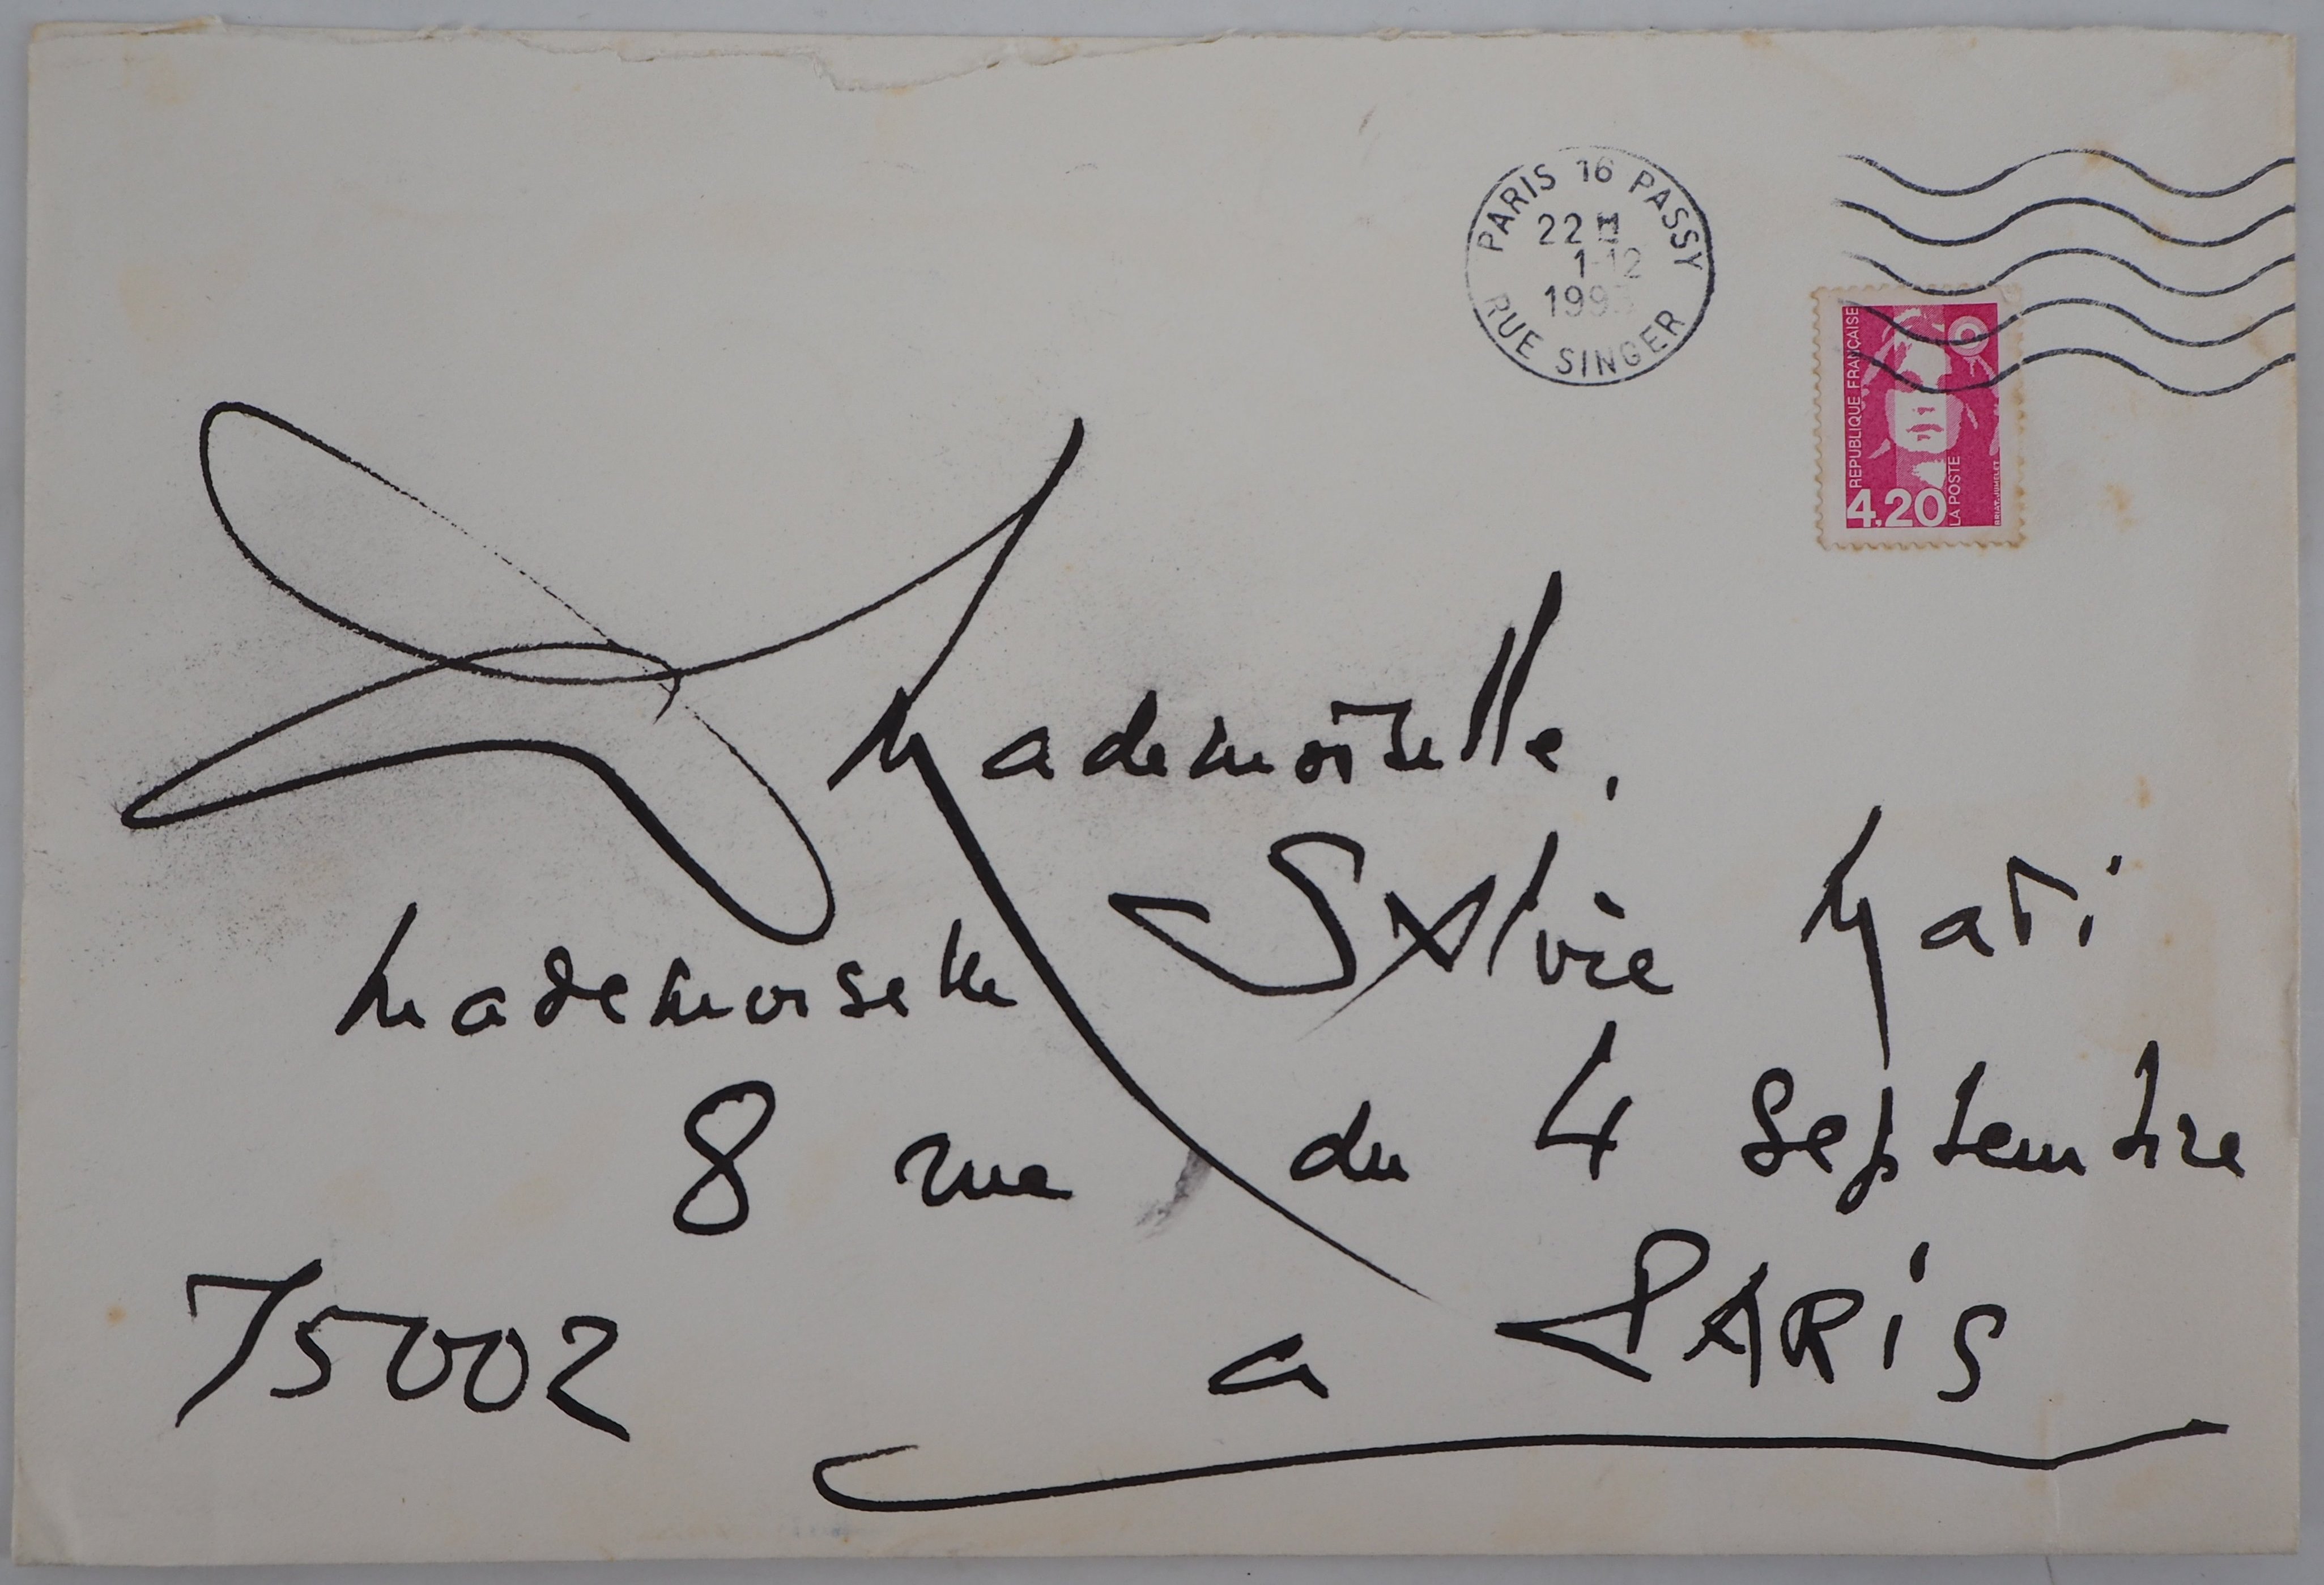 PARIS 16 PASSY
22 H
1-12
199
RUE SINGER
REPUBLIQUE FRANÇAISE
4,20
LA POSTE
BRIAT-JUMELET
Mademoiselle,
Sylvie Mati
Mademoiselle
8 rue du 4 Septembre
75002 a PARiS